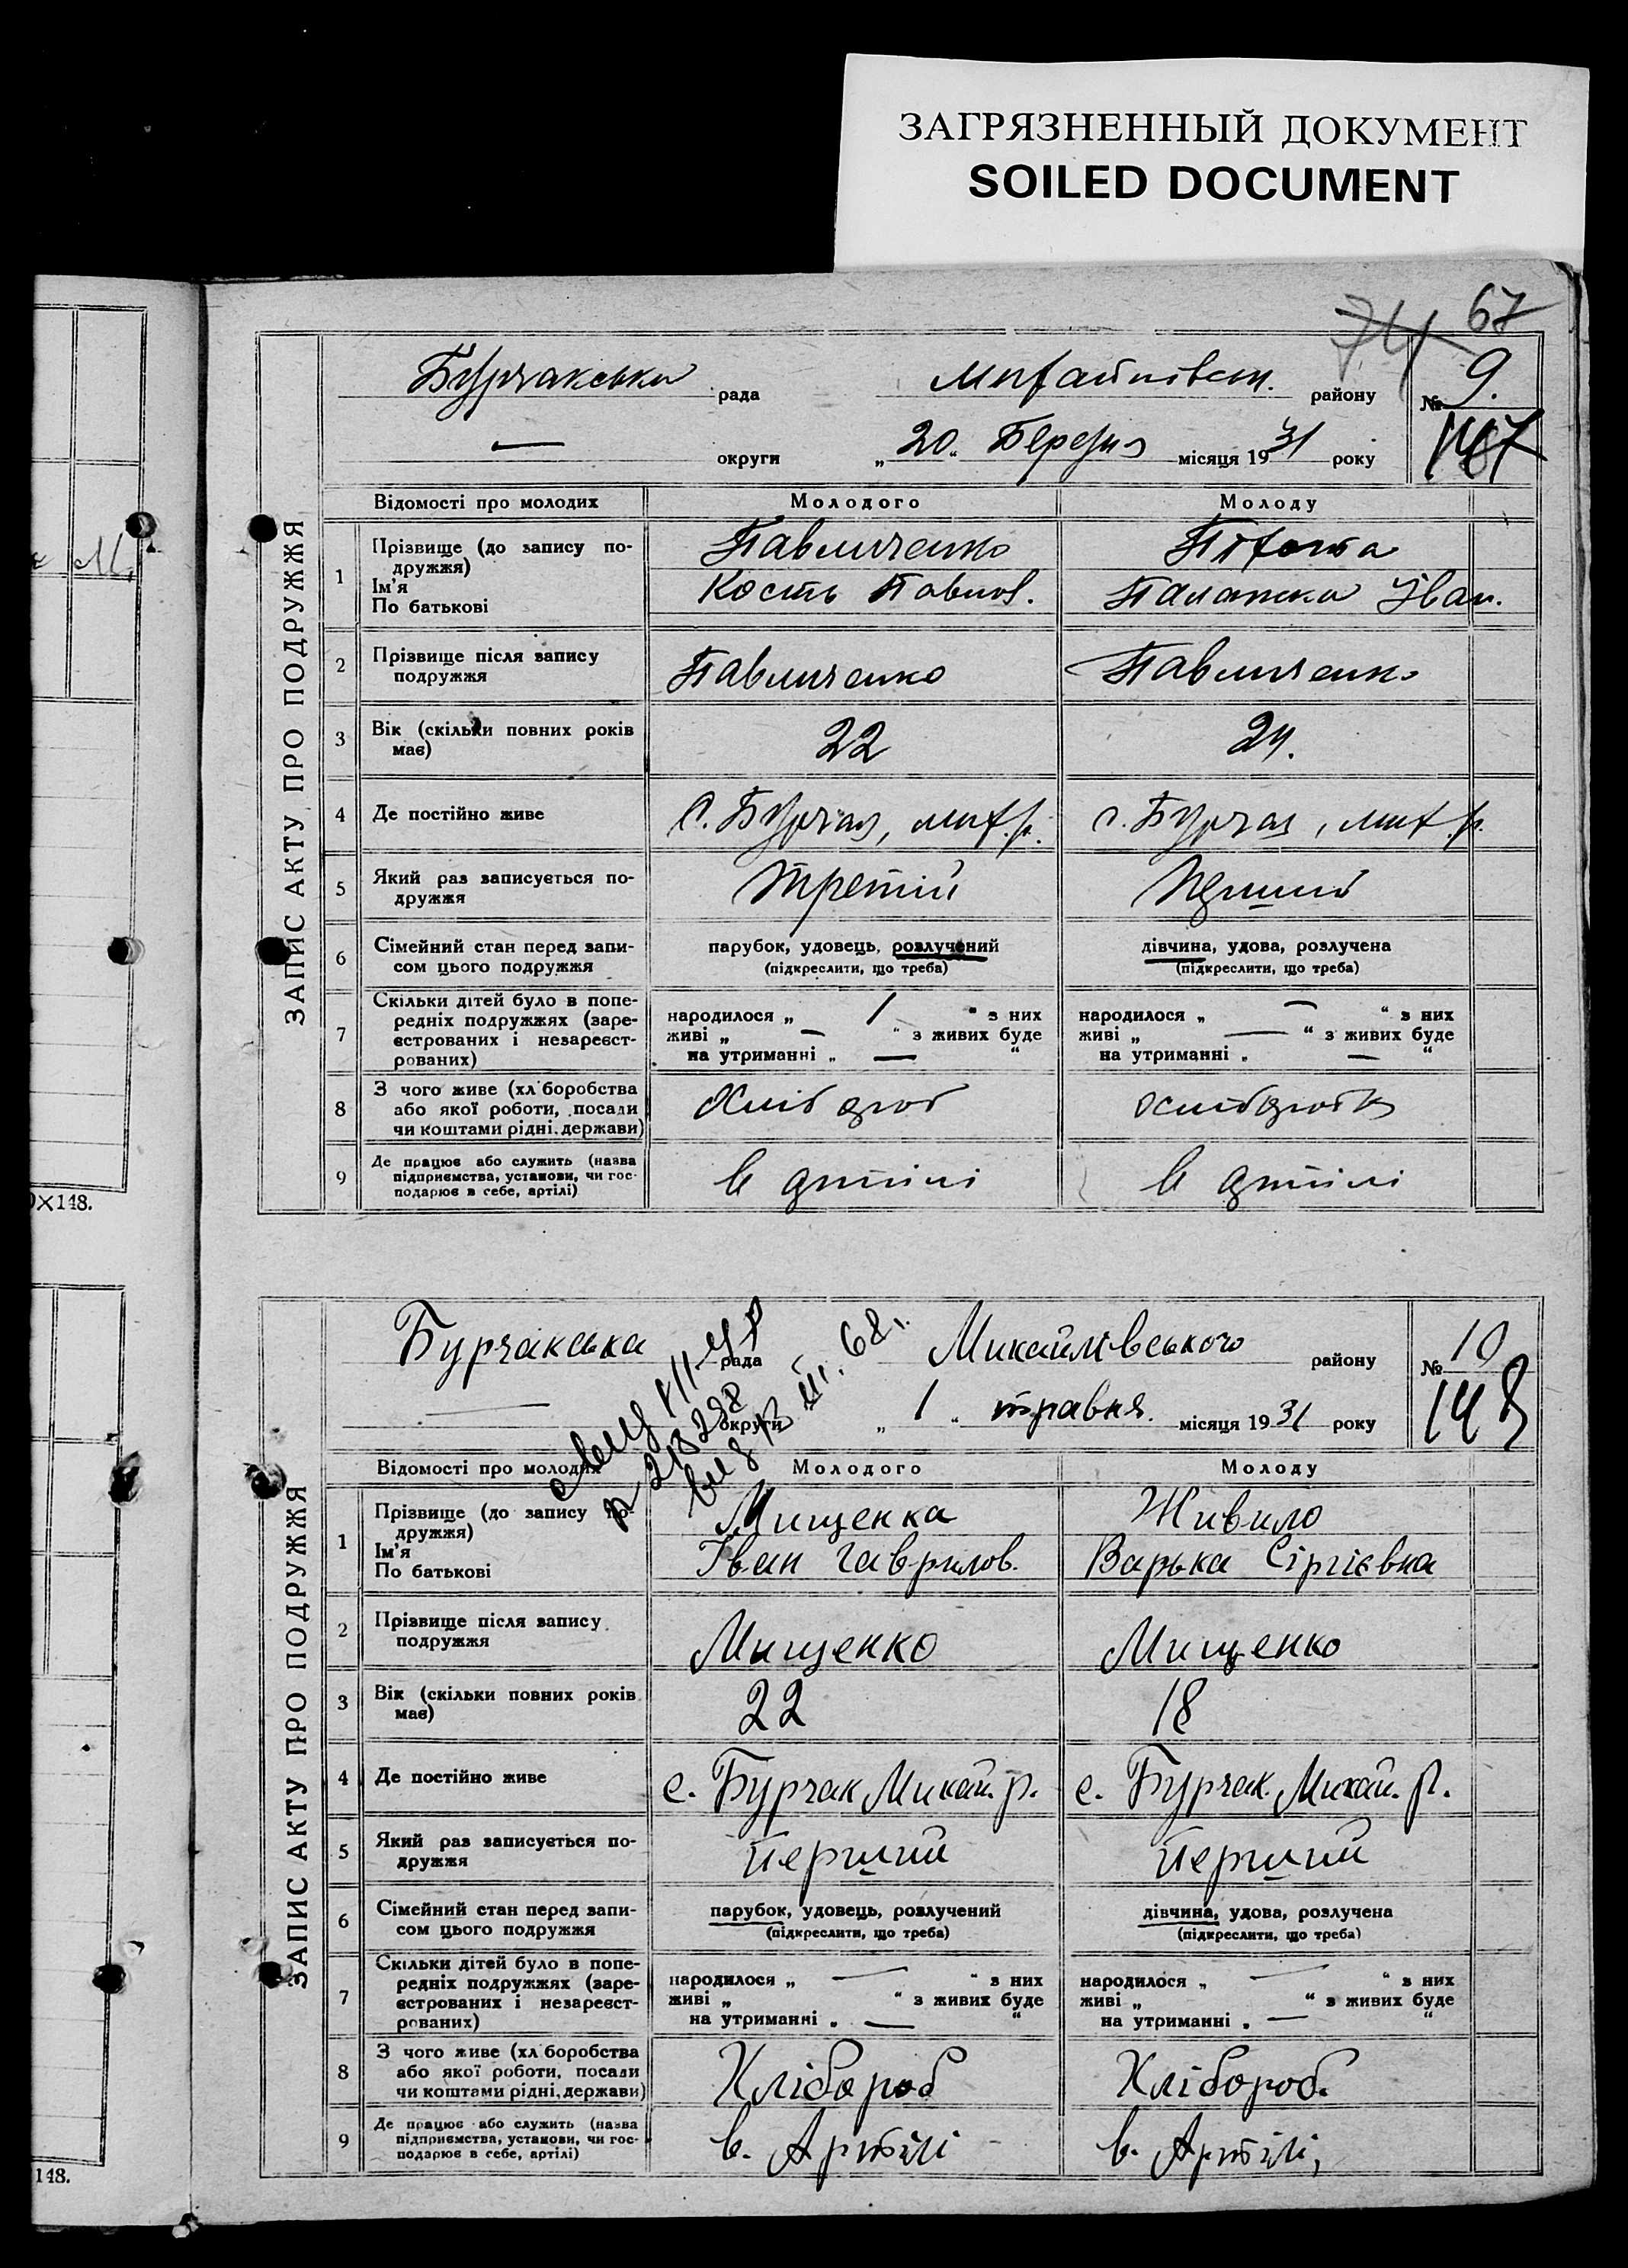 ЗАГРЯЗНЕННЫЙ ДОКУМЕНТ
SOILED DOCUMENT
67
74
Бурчакська рада Михайлівськ. району № 9.
— округи „20“ Березня місяця 1931 року 147
ЗАПИС АКТУ ПРО ПОДРУЖЖЯ
Відомості про молодих Молодого Молоду
1 Прізвище (до запису по-
дружжя) Павличенко
Ім’я
По батькові Кость Павлов. Палажка Іван.
2 Прізвище після запису
подружжя Павличенко Павличенко
3 Вік (скільки повних років
має) 22 24.
4 Де постійно живе С. Бурчак, мих. р. с. Бурчак, мих. р.
5 Який раз записується по-
дружжя третій перший
6 Сімейний стан перед запи-
сом цього подружжя парубок, удовець, розлучений дівчина, удова, розлучена
(підкреслити, що треба) (підкреслити, що треба)
7 Скільки дітей було в попе-
редніх подружжях (заре-
єстрованих і незареєст-
рованих) народилося „ 1 “ з них народилося „ — “ з них
живі „ — “ з живих буде живі „ — “ з живих буде
на утриманні „ — “ на утриманні „ — “
8 З чого живе (хліборобства
або якої роботи, посади
чи коштами рідні, держави) хлібороб
9 Де працює або служить (назва
підприємства, установи, чи гос-
подарює в себе, артілі) в артілі в артілі
0×148.
Бурчакська рада Михайлівського району № 10
— округи „ 1 “ травня. місяця 1931 року 148
68.
ЗАПИС АКТУ ПРО ПОДРУЖЖЯ
Відомості про молодих Молодого Молоду
1 Прізвище (до запису по-
дружжя) Мищенка Живило
Ім’я
По батькові Іван Гаврилов. Варька Сіргієвна
2 Прізвище після запису
подружжя Мищенко Мищенко
3 Вік (скільки повних років
має) 22 18
4 Де постійно живе с. Бурчак Михай. р. с. Бурчак. Михай. р.
5 Який раз записується по-
дружжя Перший Перший
6 Сімейний стан перед запи-
сом цього подружжя парубок, удовець, розлучений дівчина, удова, розлучена
(підкреслити, що треба) (підкреслити, що треба)
7 Скільки дітей було в попе-
редніх подружжях (заре-
єстрованих і незареєст-
рованих) народилося „ — “ з них народилося „ — “ з них
живі „ “ з живих буде живі „ “ з живих буде
на утриманні „ — “ на утриманні „ — “
8 З чого живе (хліборобства
або якої роботи, посади
чи коштами рідні, держави) Хлібороб Хлібороб.
9 Де працює або служить (назва
підприємства, установи, чи гос-
подарює в себе, артілі) в. Артілі в. Артілі,
148.